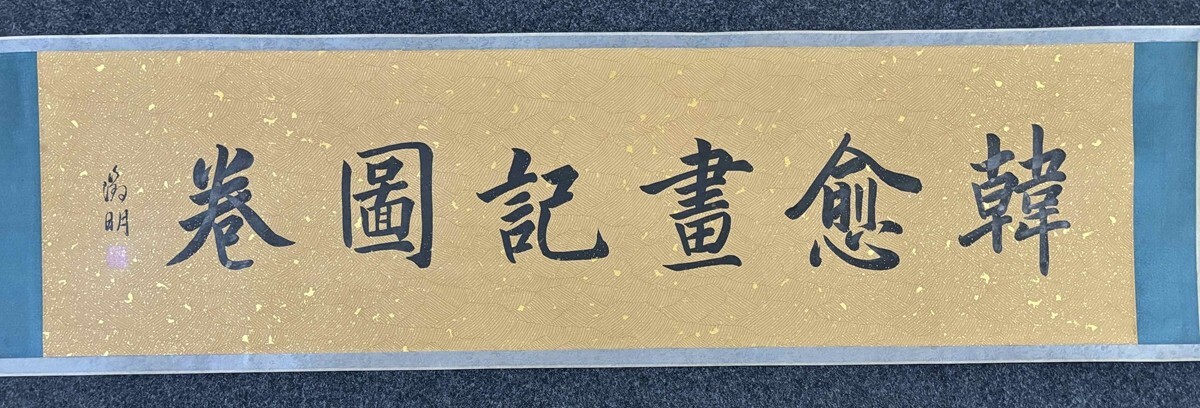 韓愈畫記圖卷
徵明